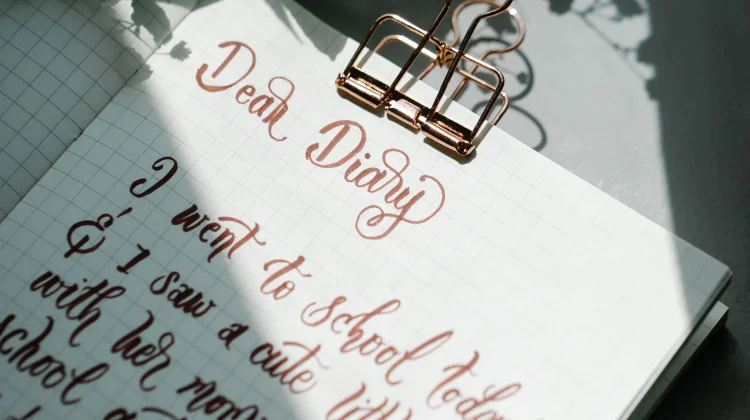 Dear Diary
I went to school today
& I saw a cute
with her mom
school